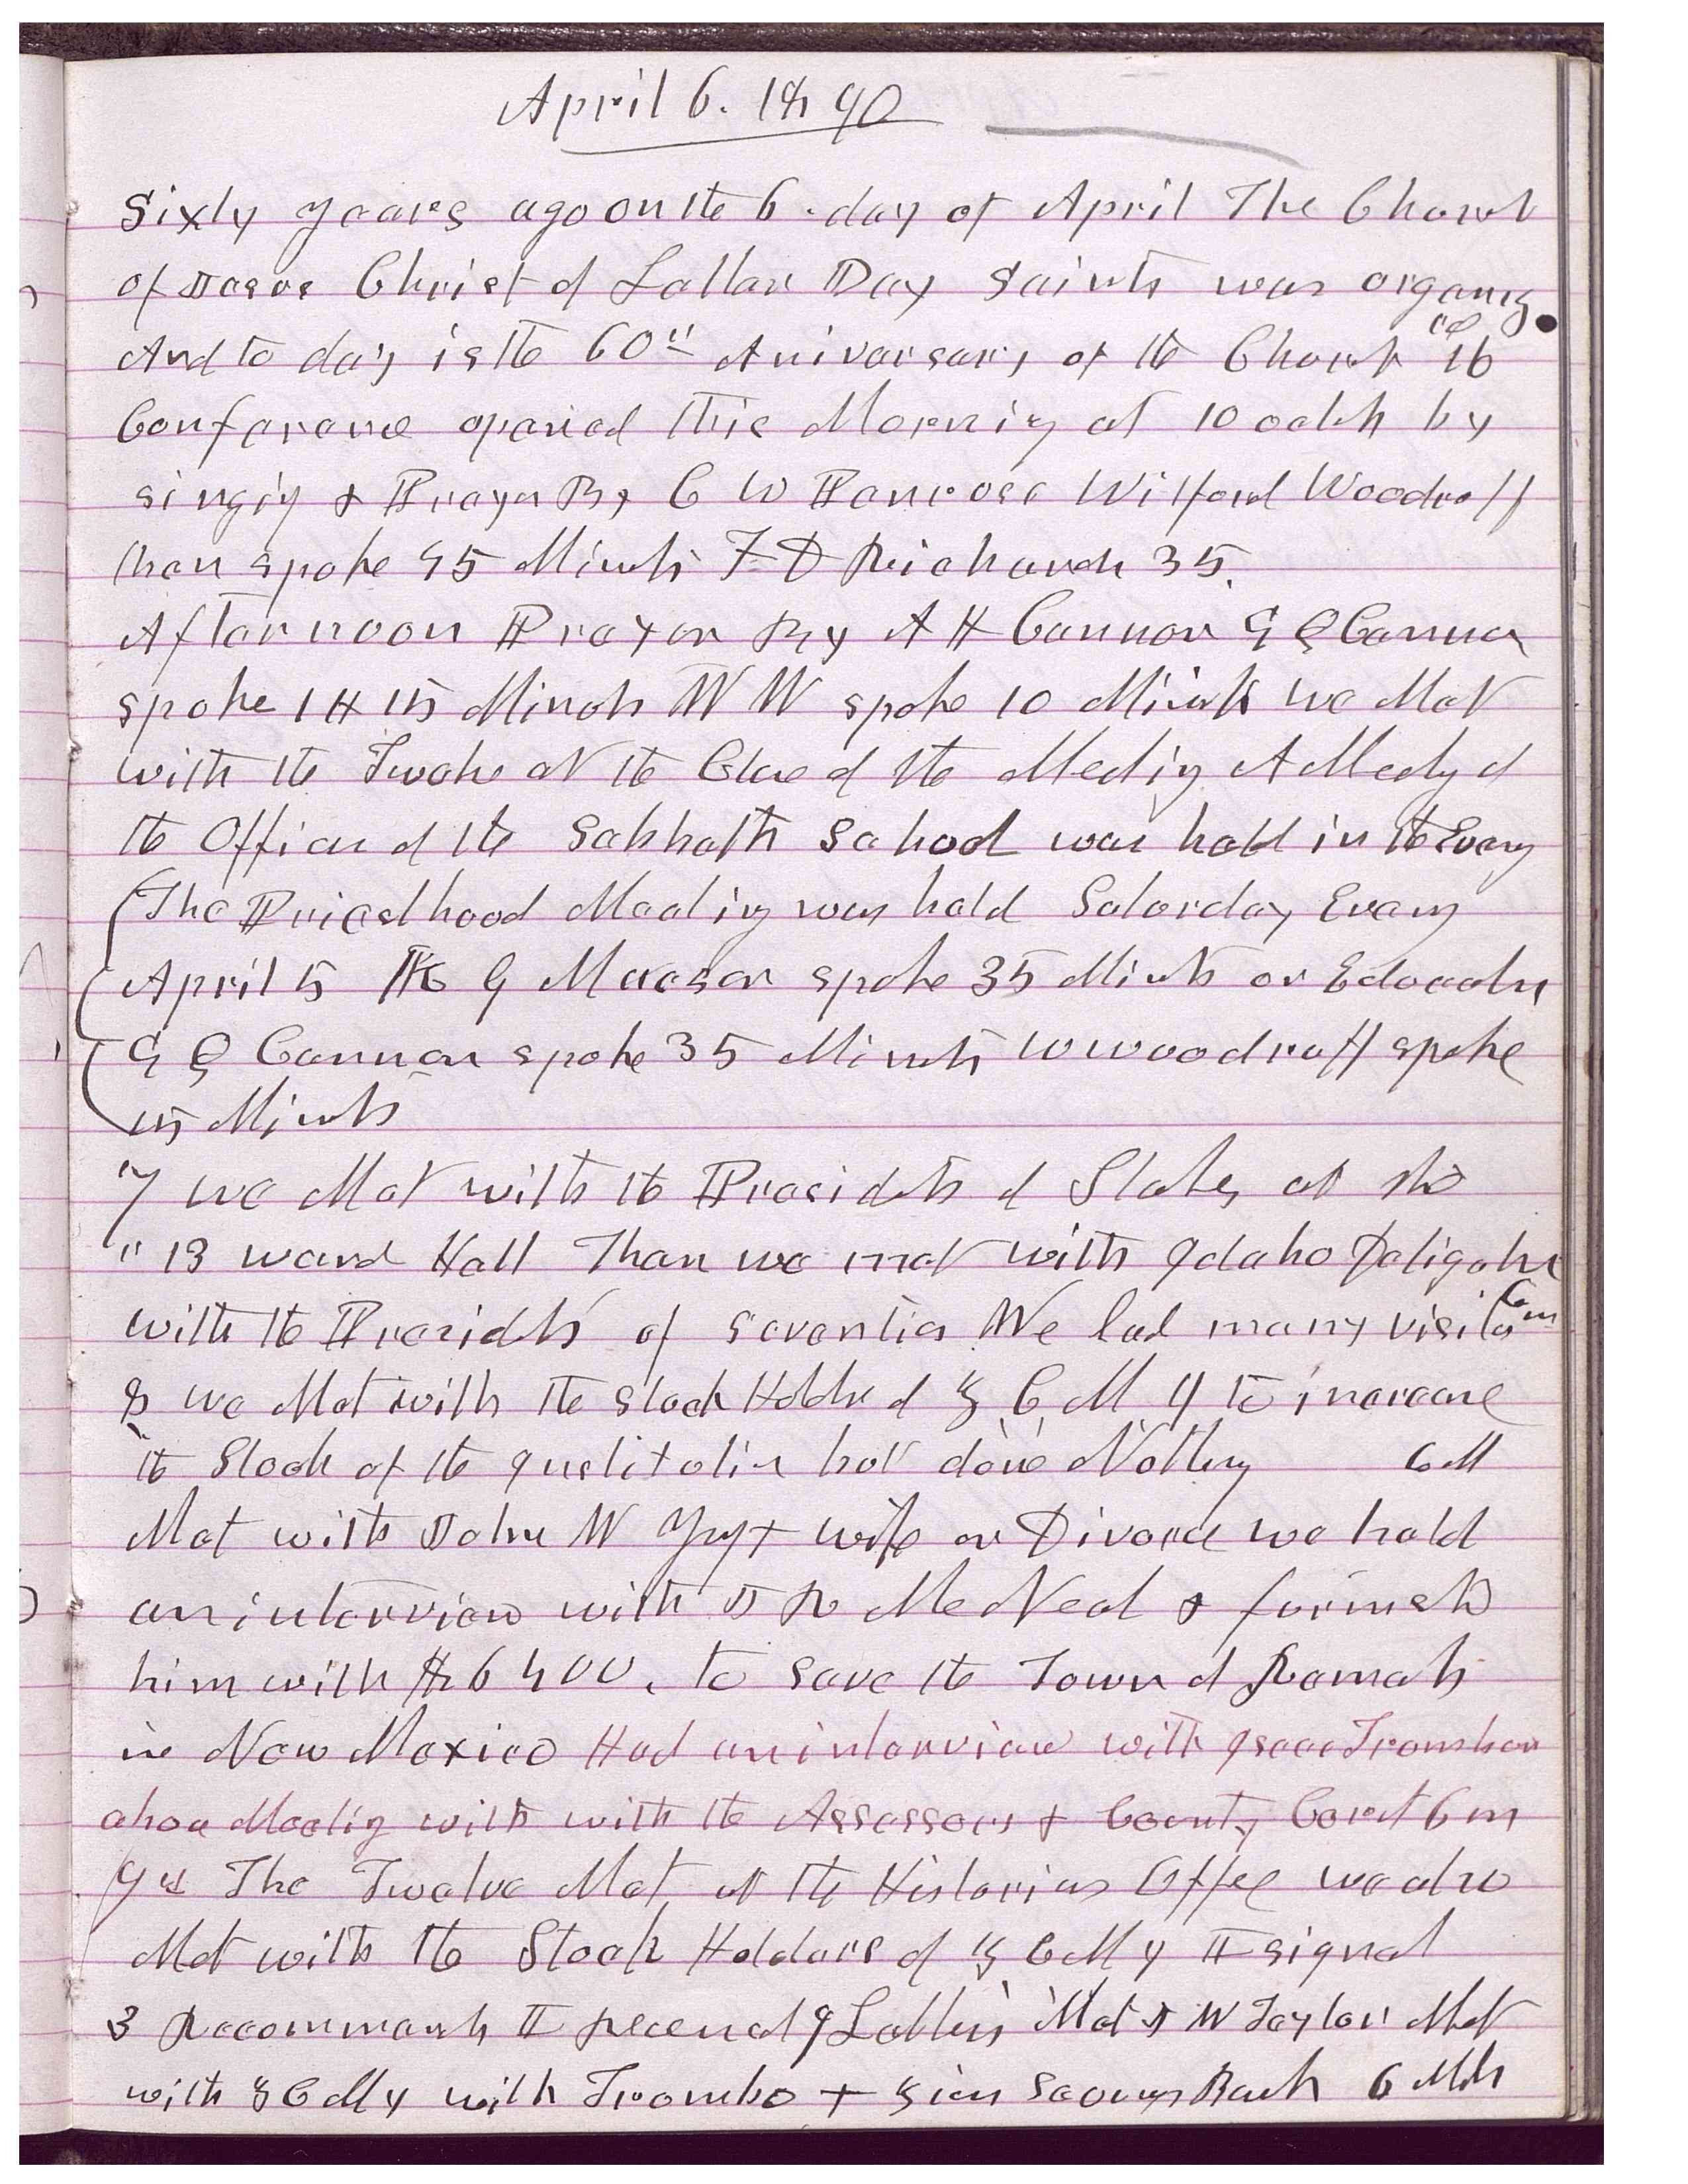 April 6. 1890
Sixty years ago on the 6 day of April The Church
of Jesus Christ of Latter Day Saints was organiz
ed
And to day is the 60th Aniversary of the Church the
Conference opened this Morning at 10 oclk by
singing & Prayer By C W Penrose Wilford Woodruff
then spoke 45 Minuts F D Richards 35.
Afternoon Prayer By A H Cannon G Q Cannon
spoke 1 H 15 Minuts W W spoke 10 Minuts we Met
with the Twelve at the Close of the Meeting A Meeting of
the Officers of the Sabbath School was held in the Evening
The Priesthood Meeting was held Saturday Evening
April 5 K G Maeser spoke 35 Minuts on Education
G Q Cannon spoke 35 Minuts W Woodruff spoke
15 Minuts
7 we Met with the Presidets of Stakes at the
" 13 ward Hall Then we met with Idaho Deligates
with the Presidts of Seventies We had many visitors 6 m
8 we Met with the stock Holders of Z C M I to increase
the Stock of the Institution but done Nothing 6 M
Met with John W Young & wife on Divorce we held
an interview with J R McNeal & furnishd
him with $6400. to save the Town of Ramah
in New Mexico Had an interview with Isaac Trombow
also Meeting with with the Assessors & County Court 6 m
9 The Twelve Met at the Historians Office we also
Met with the Stock Holders of Z C M I I signed
3 Recommends I receved 9 Letters Met J W Taylor Met
with Z C M I with Trombo & Zion Savings Bank 6 Mls